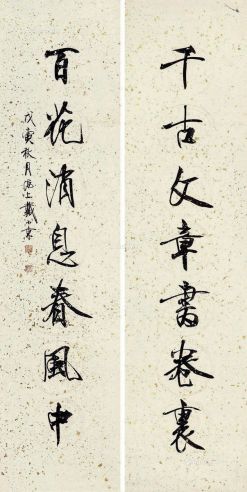 千古文章書卷裏
百花消息春風中
戊寅秋月海上戴小京